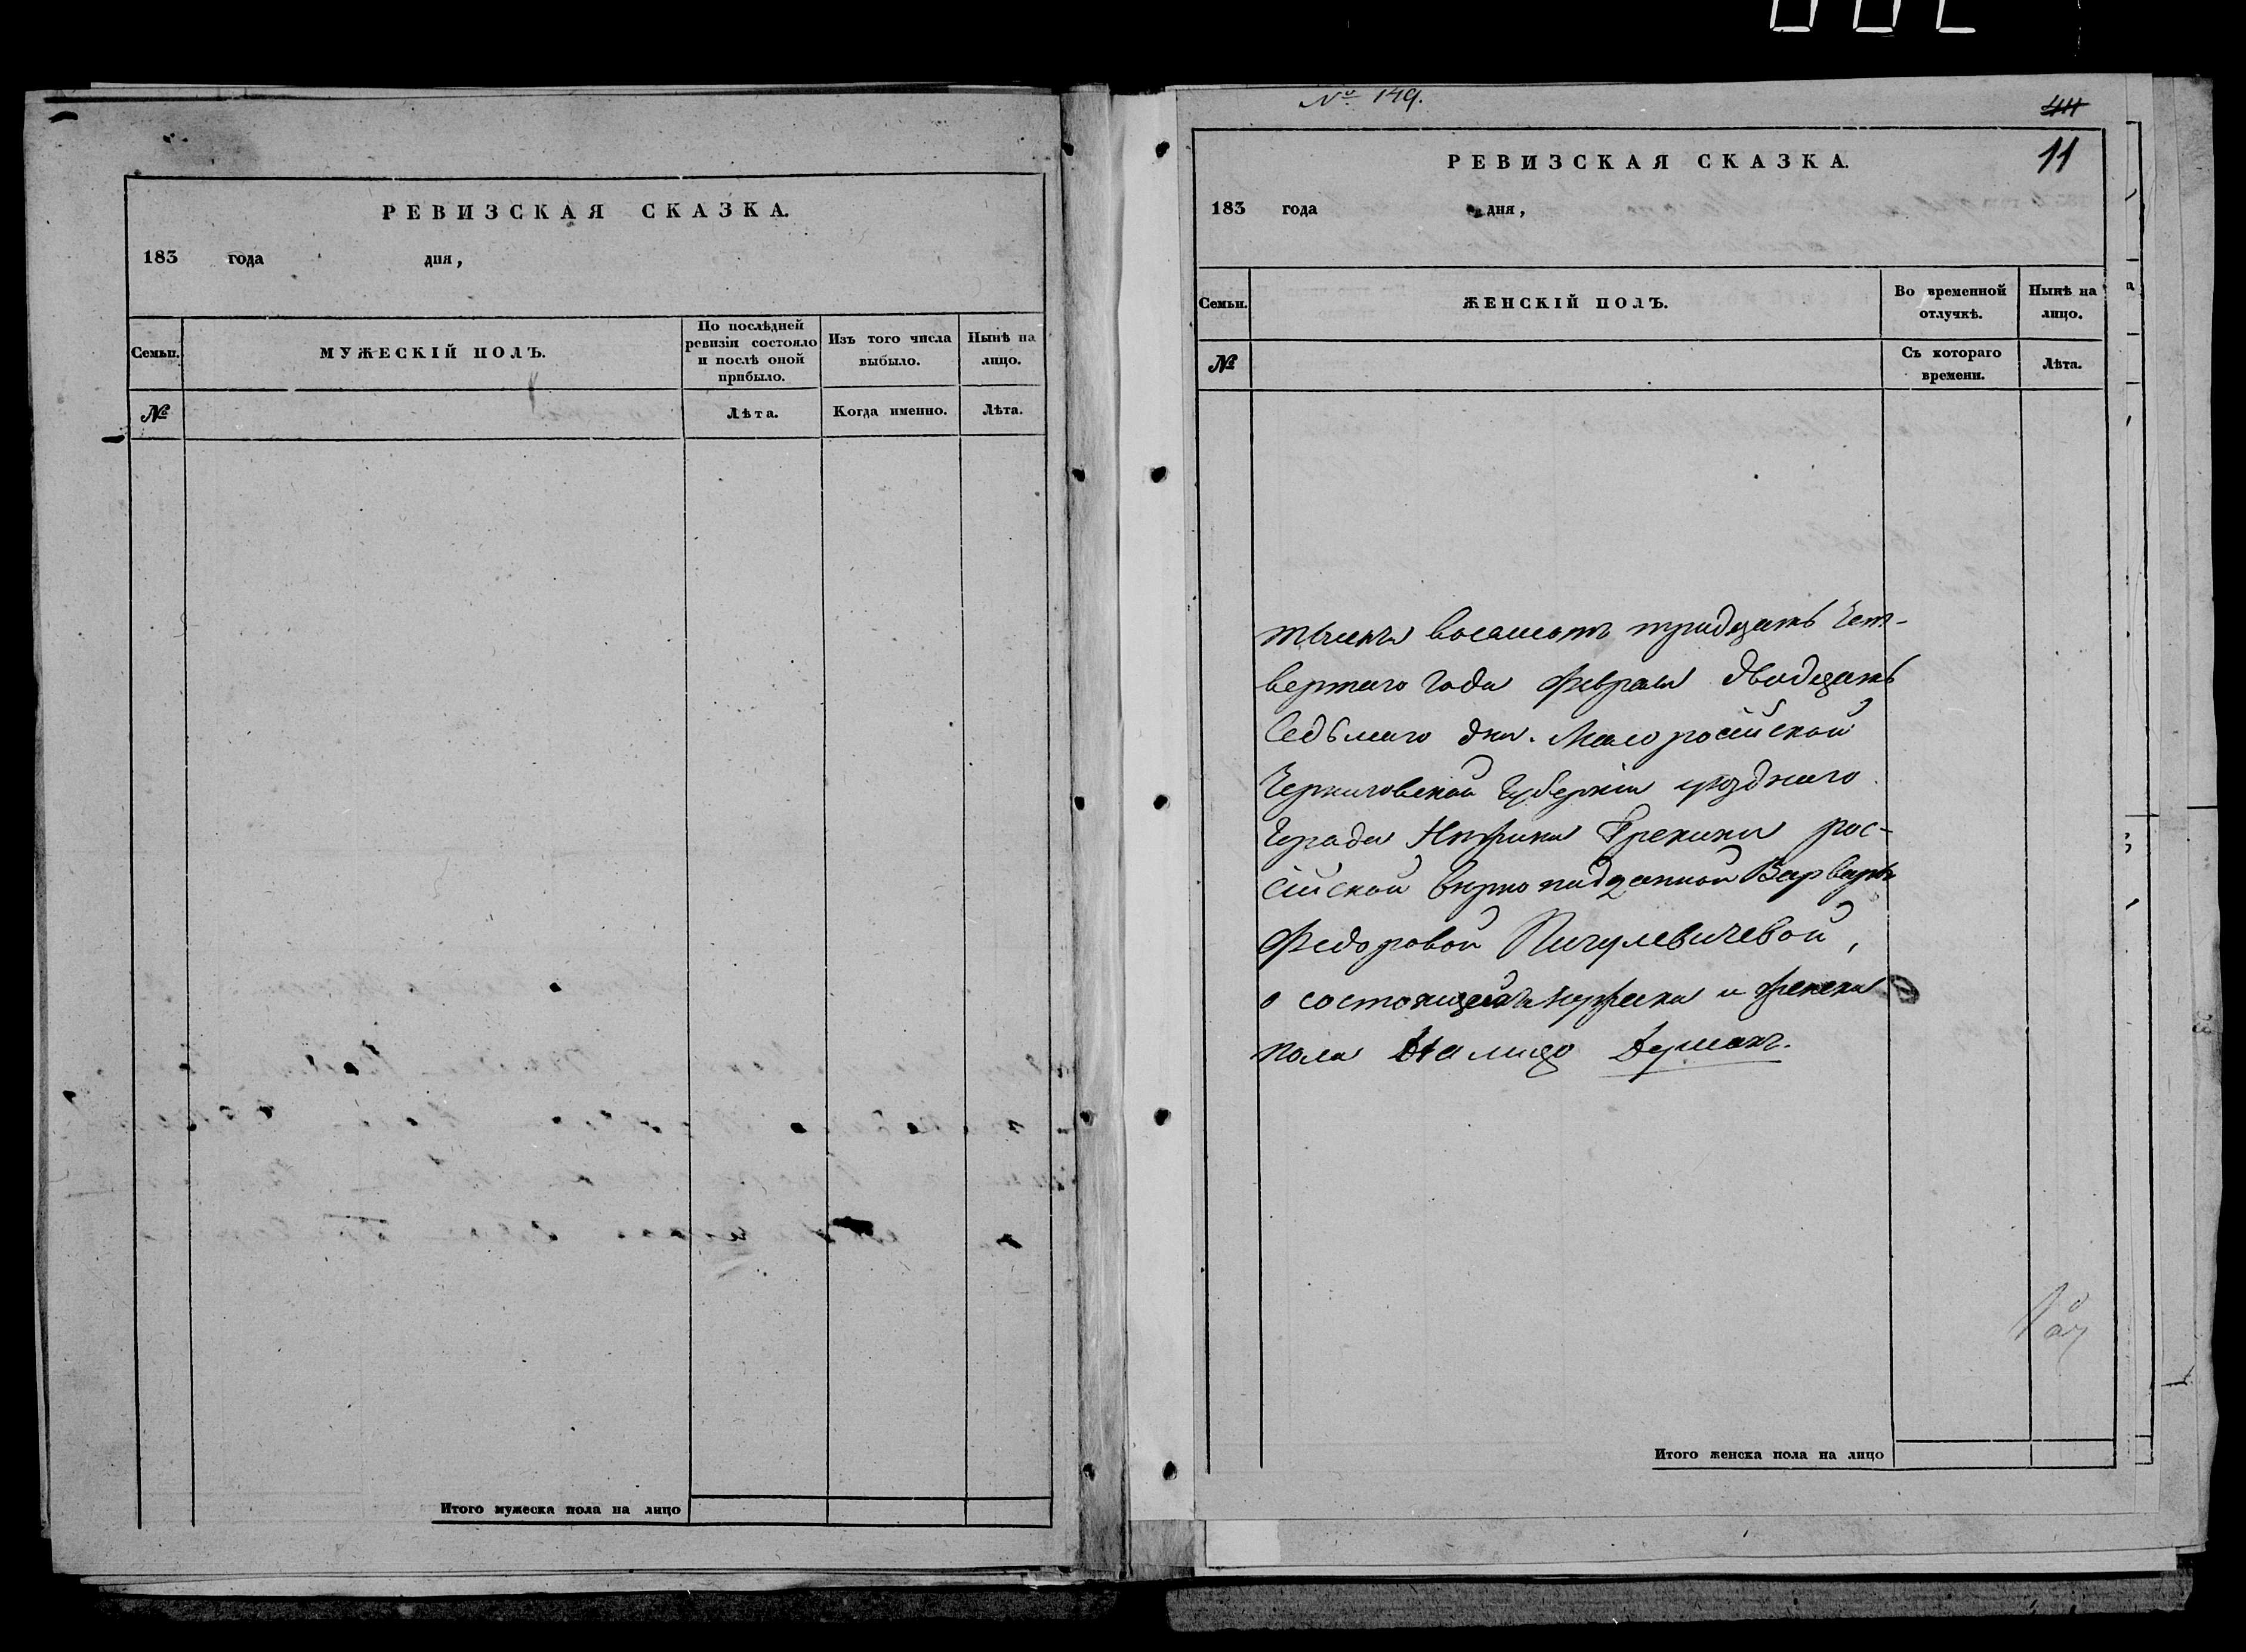 РЕВИЗСКАЯ СКАЗКА.
183 года дня,
Семьи.
МУЖЕСКІЙ ПОЛЪ.
По послѣдней ревизіи состояло и послѣ оной прибыло.
Изъ того числа выбыло.
Нынѣ на лицо.
№
Лѣта.
Когда именно.
Лѣта.
Итого мужеска пола на лицо
№ 149.
44
11
РЕВИЗСКАЯ СКАЗКА.
183 года дня,
Семьи.
ЖЕНСКІЙ ПОЛЪ.
Во временной отлучкѣ.
Нынѣ на лицо.
№
Съ котораго времени.
Лѣта.
тысяча восемсотъ тридцать чет-
вертаго года февраля двадцать
седьмаго дня. Малоросійской
Черниговской губерніи уѣзднаго
города Нѣжина Грекини рос-
сійской вѣрноподданной Варвары
Федоровой Пичулевичевой,
о состоящихъ мужеска и женска
пола На лицо Душахъ.
Итого женска пола на лицо